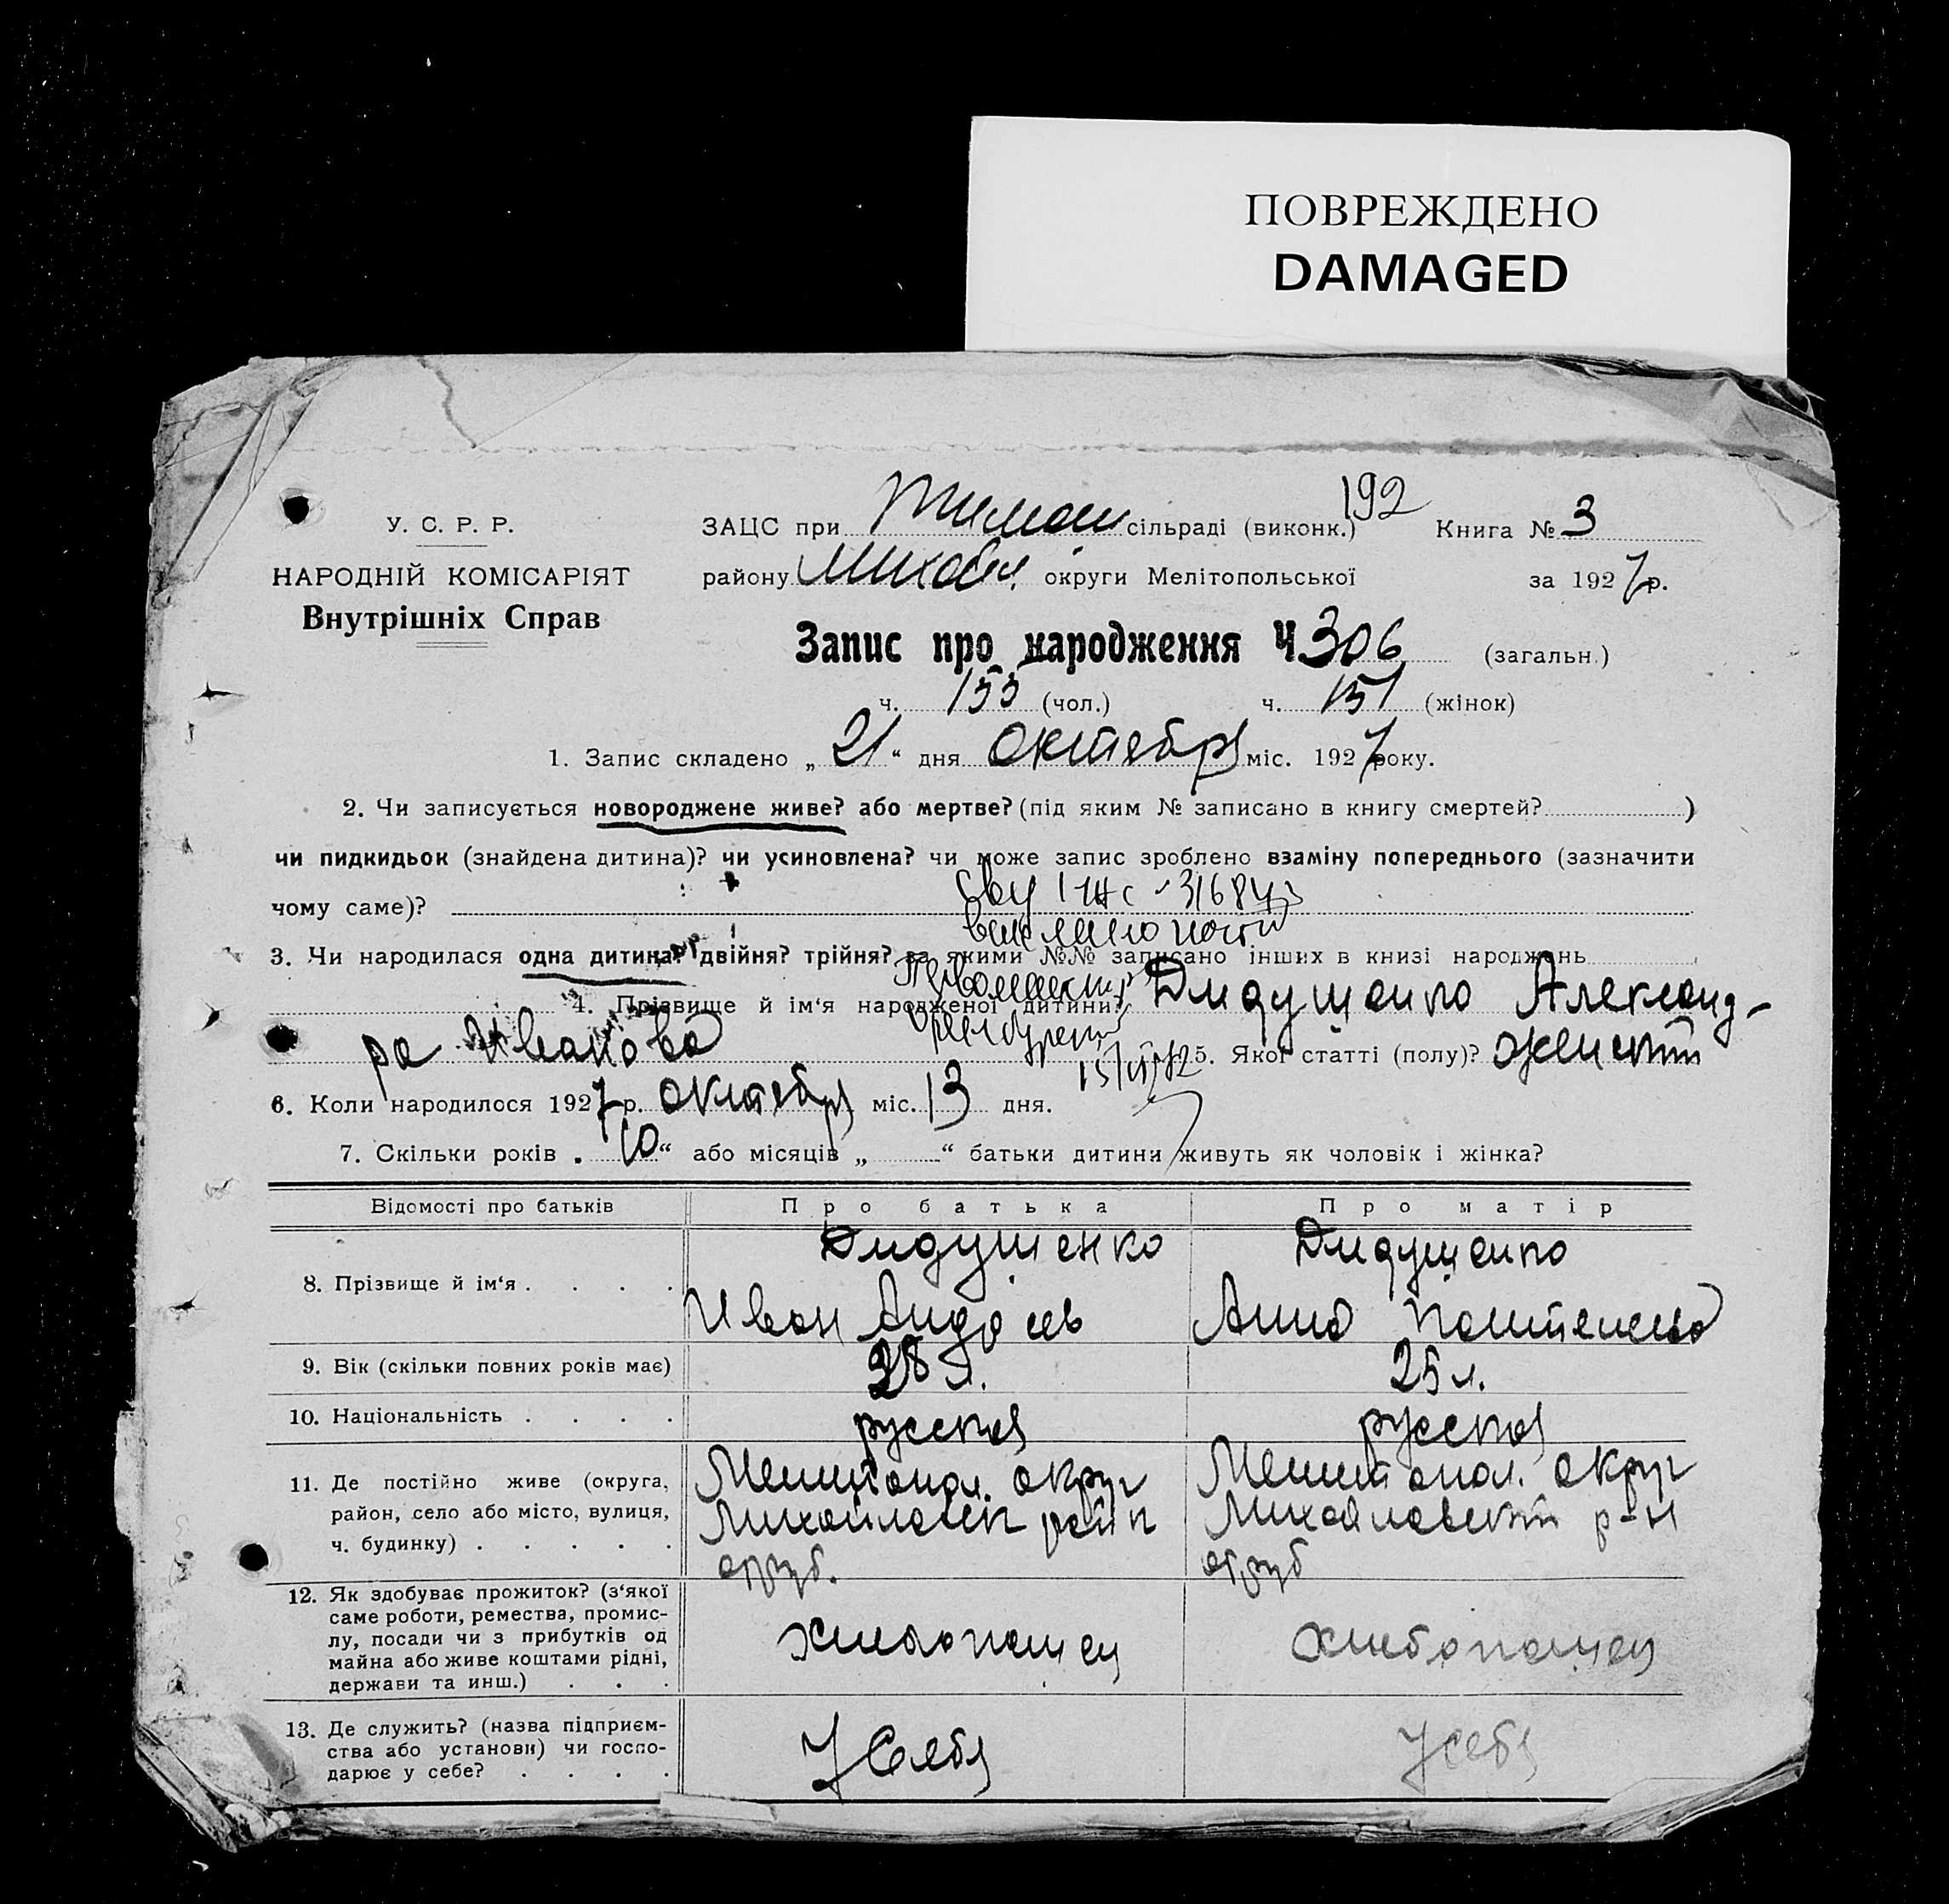 ПОВРЕЖДЕНО
DAMAGED
192
У. С. Р. Р.
НАРОДНІЙ КОМІСАРІЯТ
Внутрішніх Справ
ЗАЦС при Тимош сільраді (виконк.) Книга № 3
району Михайл. округи Мелітопольської за 1927 р.
Запис про народження Ч. 306 (загальн.)
ч. 155 (чол.) ч. 151 (жінок)
1. Запис складено „ 21 “ дня октебря міс. 1927 року.
2. Чи записується новороджене живе? або мертве? (під яким № записано в книгу смертей? )
чи пидкидьок (знайдена дитина)? чи усиновлена? чи може запис зроблено взаміну попереднього (зазначити
чому саме)?
3. Чи народилася одна дитина? двійня? трійня? за якими №№ записано інших в книзі народжень
4. Прізвище й ім‘я народженої дитини? Дидушенко Александ-
ра Иванова 5. Якої статті (полу)? женский
6. Коли народилося 1927 р. октебря міс. 13 дня.
7. Скільки років „ 10 “ або місяців „ “ батьки дитини живуть як чоловік і жінка?
Відомості про батьків Про батька Про матір
8. Прізвище й ім‘я . . . . Дидушенко Дидушенко
Иван Андреев Анна
9. Вік (скільки повних років має) 28 л. 25 л.
10. Національність . . . . русская русская
11. Де постійно живе (округа, Мелитопол. округ Мелитопол. округ
район, село або місто, вулиця, Михайловск район Михайловский р-н
ч. будинку) . . . . .
12. Як здобуває прожиток? (з‘якої
саме роботи, ремества, промис-
лу, посади чи з прибутків од хлибопашец хлибопашец
майна або живе коштами рідні,
держави та инш.) . . .
13. Де служить? (назва підприєм-
ства або установи) чи госпо- У себя У себя
дарює у себе? . . . .